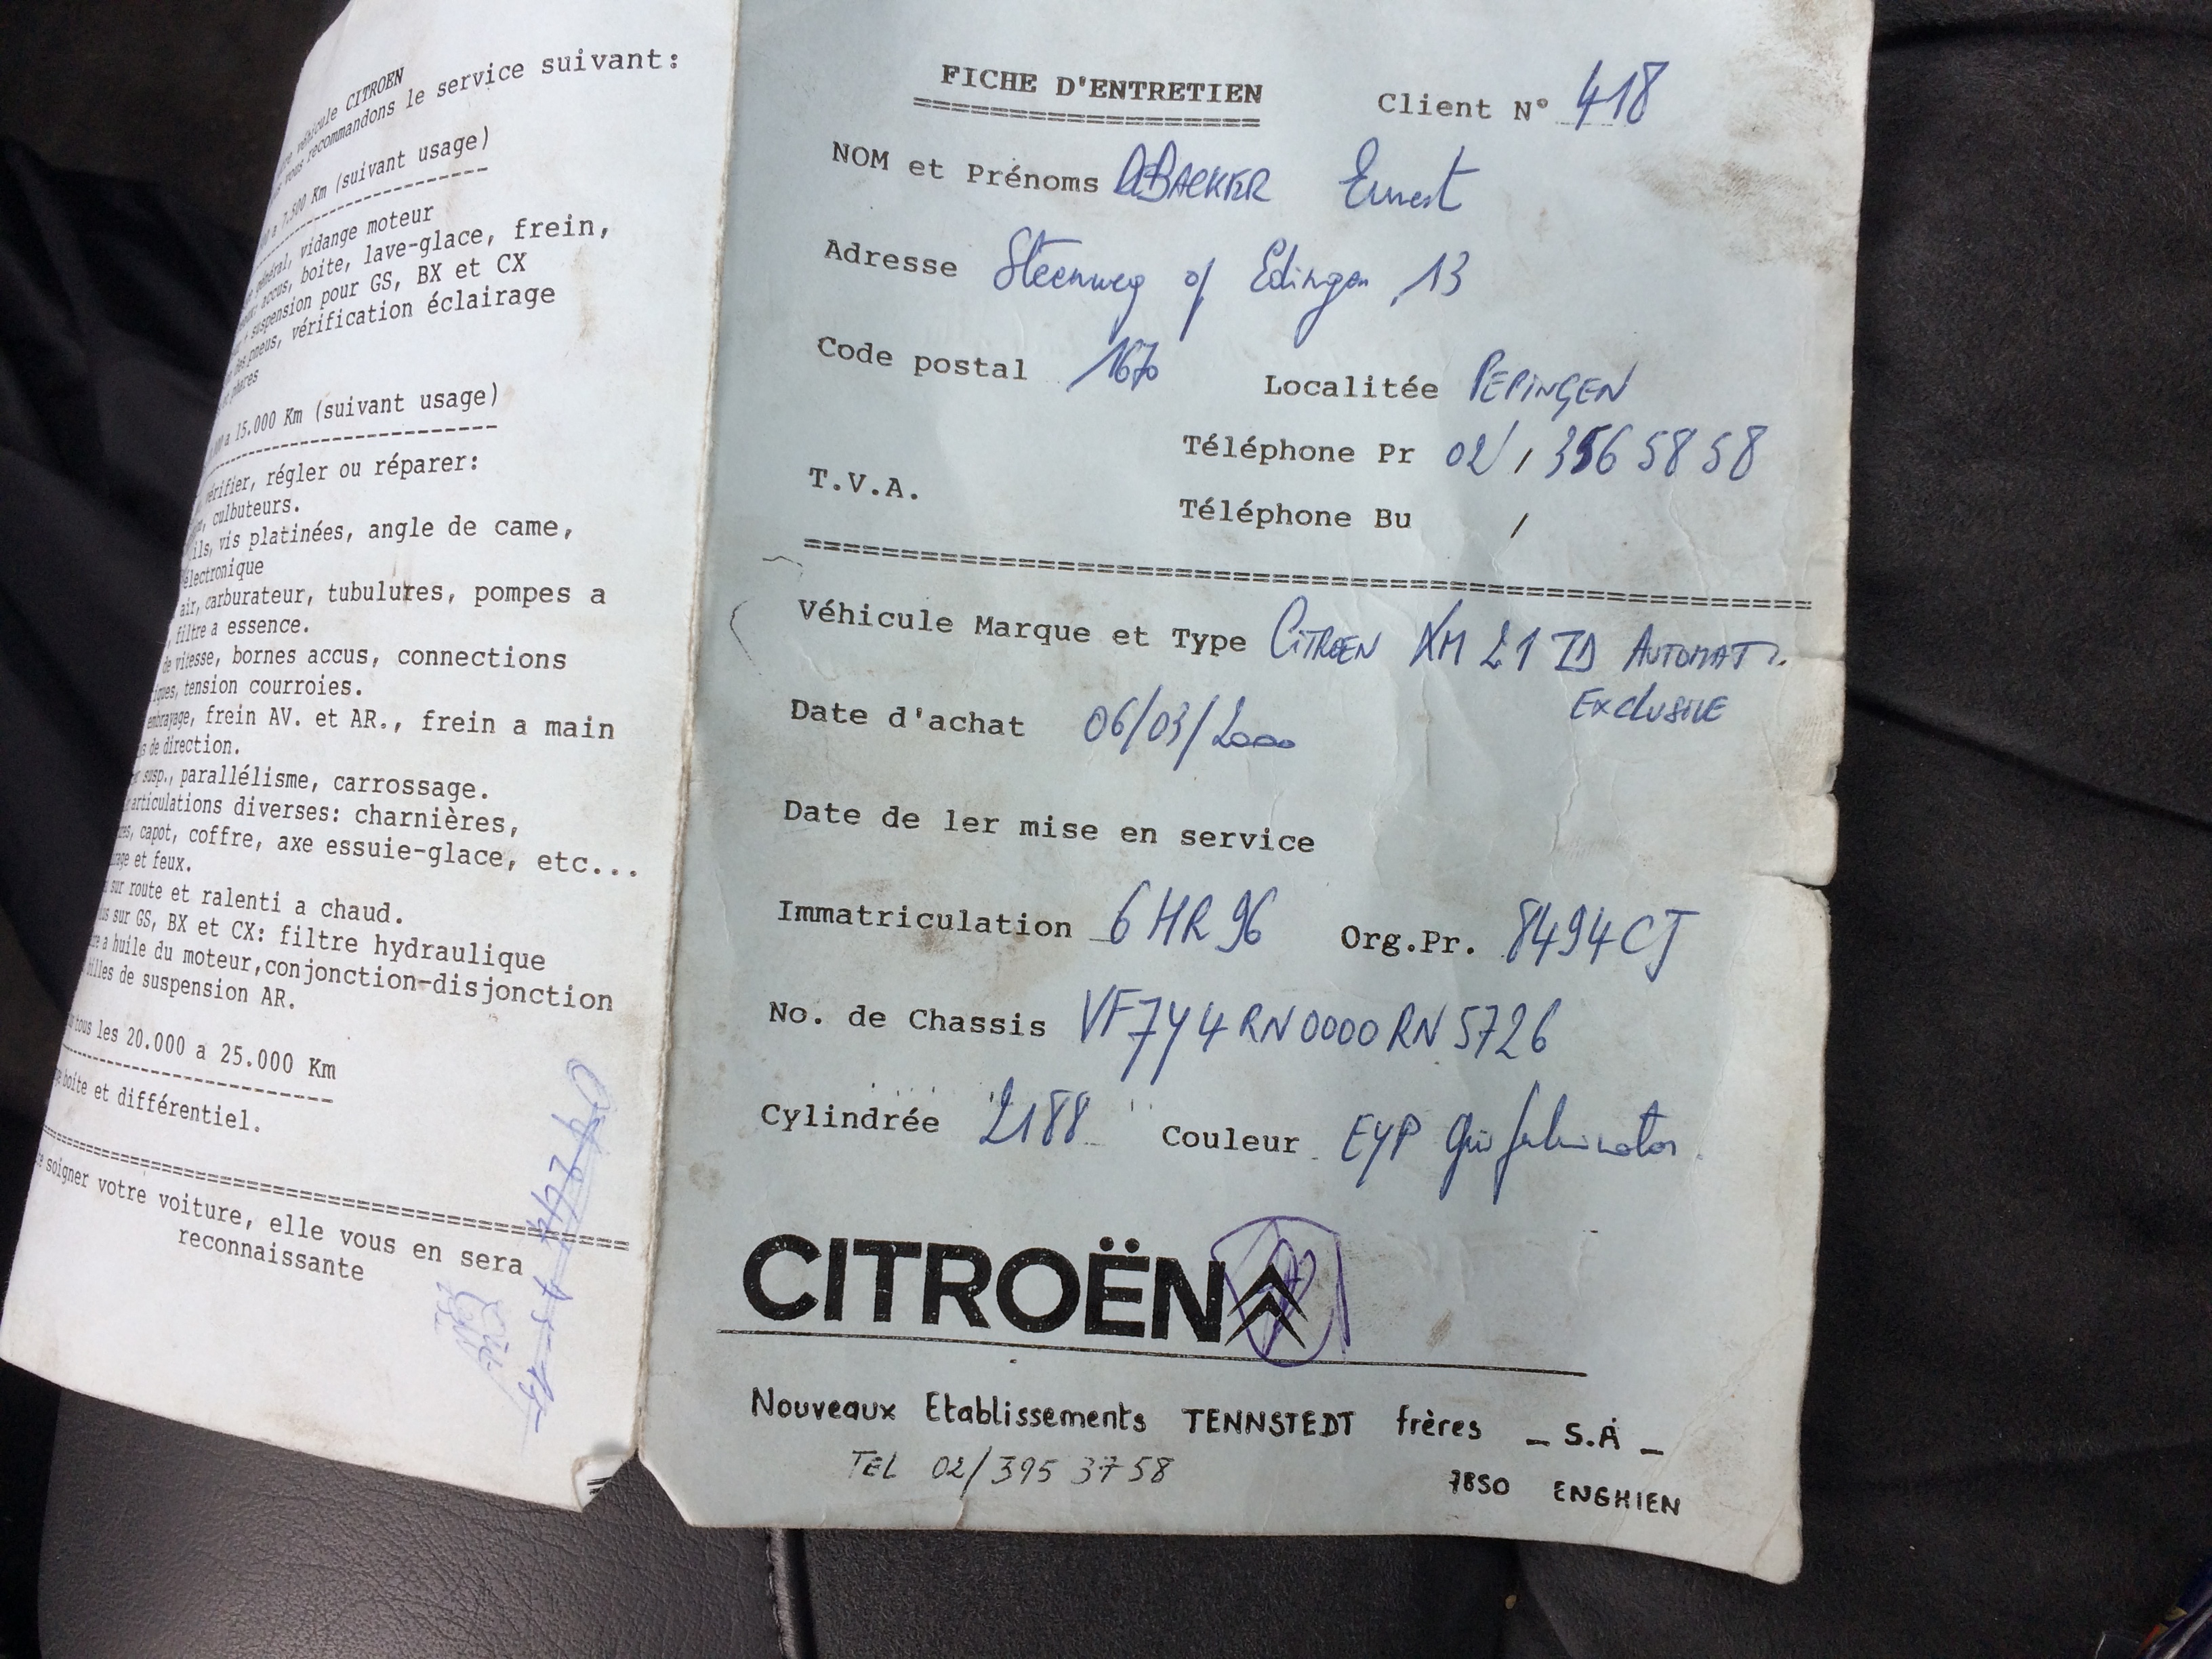 véhicule CITROEN
vous recommandons le service suivant:
7.500 Km (suivant usage)
général, vidange moteur
accus, boite, lave-glace, frein,
suspension pour GS, BX et CX
des pneus, vérification éclairage
a 15.000 Km (suivant usage)
vérifier, régler ou réparer:
culbuteurs.
vis platinées, angle de came,
électronique
air, carburateur, tubulures, pompes a
filtre a essence.
de vitesse, bornes accus, connections
tension courroies.
embrayage, frein AV. et AR., frein a main
de direction.
susp., parallélisme, carrossage.
articulations diverses: charnières,
capot, coffre, axe essuie-glace, etc...
et feux.
sur route et ralenti a chaud.
sur GS, BX et CX: filtre hydraulique
a huile du moteur,conjonction-disjonction
de suspension AR.
tous les 20.000 a 25.000 Km
boite et différentiel.
soigner votre voiture, elle vous en sera
reconnaissante
FICHE D'ENTRETIEN Client N° 418
NOM et Prénoms DEBACKER Ernest
Adresse Steenweg op Edingen 13
Code postal 1670 Localitée PEPINGEN
Téléphone Pr 02/ / 356 58 58
T.V.A.
Téléphone Bu /
Véhicule Marque et Type CITROEN XM 21 TD AUTOMAT.
EXCLUSIVE
Date d'achat 06/03/2000
Date de 1er mise en service
Immatriculation 6 HR 96 Org.Pr. 8494 CJ
No. de Chassis VF7Y4RN0000RN5726
Cylindrée 2188 Couleur EYP Gris
CITROËN
Nouveaux Etablissements TENNSTEDT frères - S.A -
TEL 02/395 37 58
7850 ENGHIEN